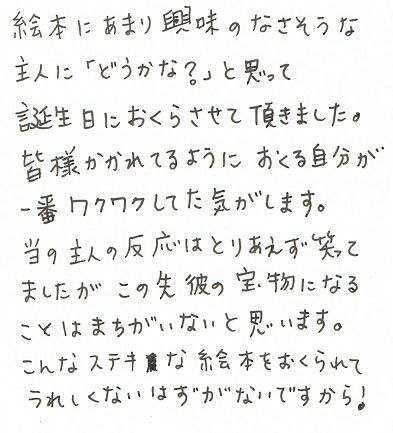 絵本にあまり興味のなさそうな
主人に「どうかな?」と思って
誕生日におくらさせて頂きました。
皆様かかれてるように おくる自分が
一番ワクワクしてた気がします。
当の主人の反応はとりあえず笑って
ましたが この先彼の宝物になる
ことはまちがいないと思います。
こんなステキな絵本をおくられて
うれしくないはずがないですから!